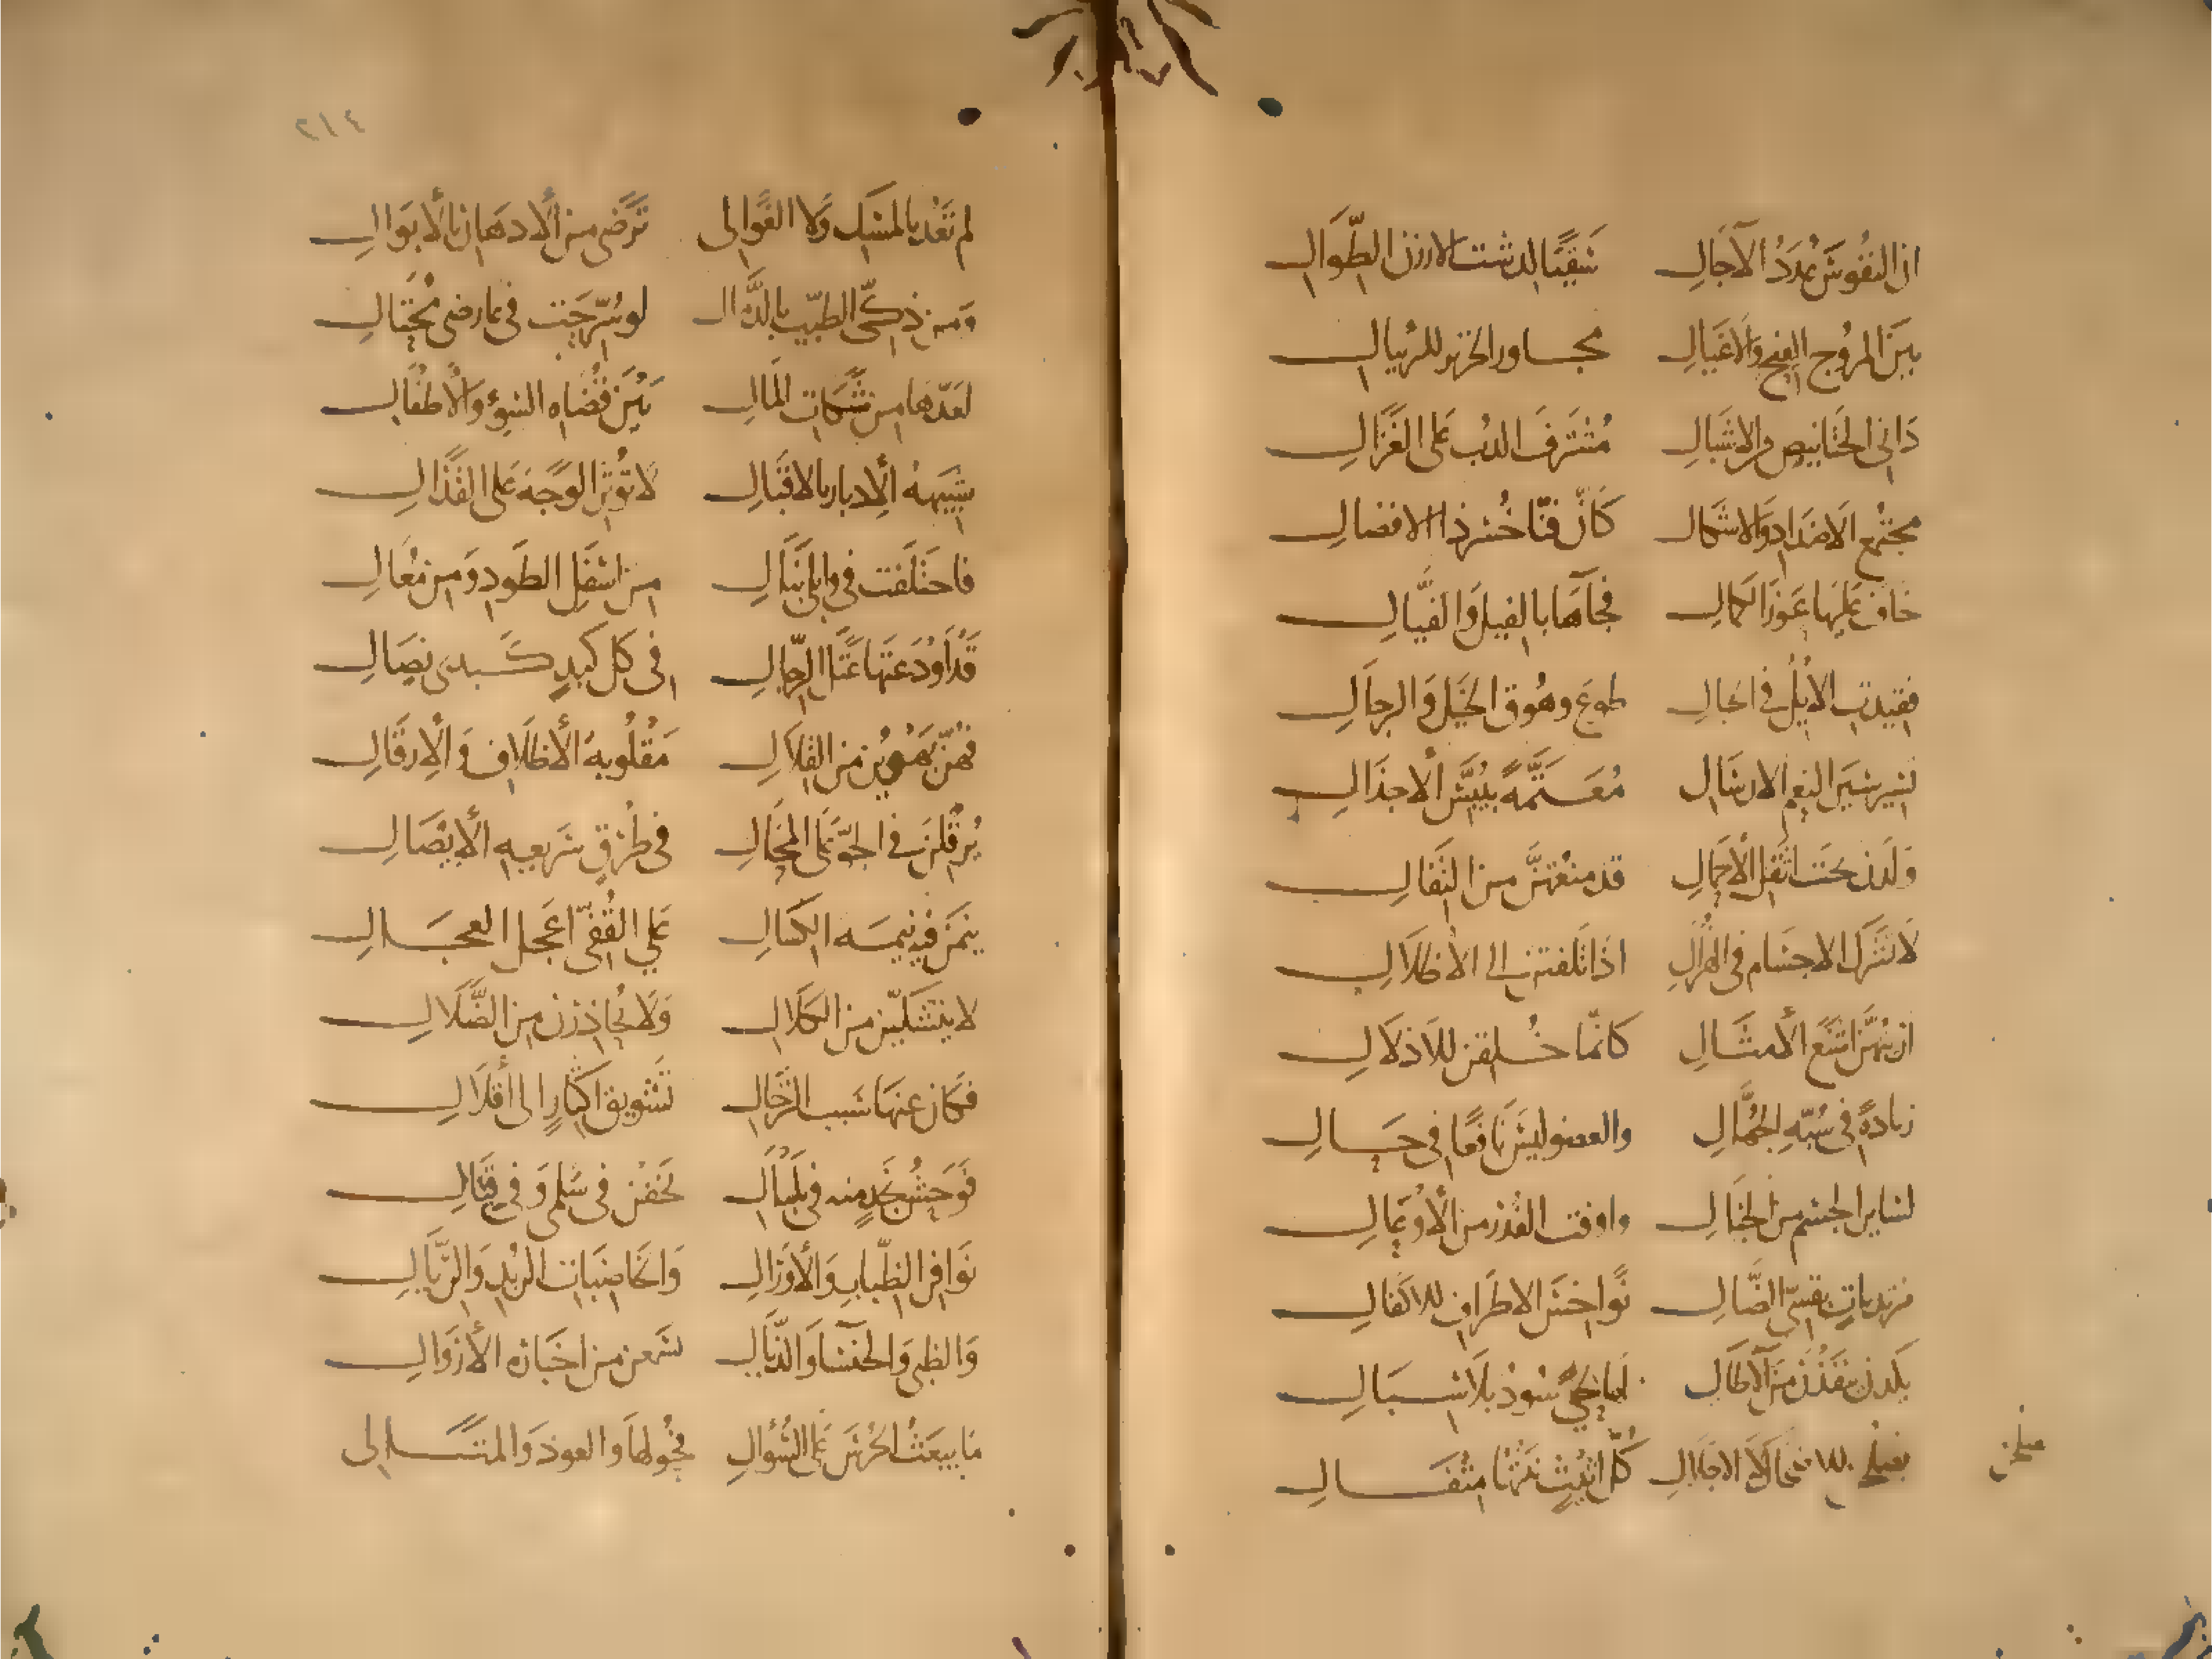 ان النفُوسَ عُدَدُ الآجَالِ سَقيًا لدشت الارزن الطِّوَالِ
بَينَ المرُوج الفِيحِ والاغيَالِ مجاور الخنزير للرّيبالِ
دَانِى الخنَانيصِ من الاشبَالِ مُشتَرفَ الدبّ عَلى الغَزَالِ
مجتمِع الاضدَادِ وَالاشكالِ كَأَنّ فنّا خُسر ذا الافضالِ
خافَ عَليهَا عَوزَ الكمالِ فجآءَهَا بالفيلِ وَالفَيّالِ
فقيدتِ الأيّلُ في الحبالِ طوعَ وهُوق الخَيل وَالرجالِ
تسِير سَيرَ النعم الارسَالِ مُعتمَّةً بيُبَّسِ الأجذَالِ
وَلدنَ تحتَ اثقلِ الأحمَالِ قد منعَتهُنَّ من التَفَالِى
لَا تَشرَك الاجسَام في الهُزَالِ اذَا تَلفتنَ إلى الأظلَالِ
أرينهُنَّ اشنَعَ الأمثَالِ كانمّا خُلقن للاذلَالِ
زيادةً في سُبّةِ الجُهَّالِ والعضو ليسَ نَافعًا في حَالِ
لسَاير الجسم منَ الخبَالِ واوفت الفُدر من الأوعَالِ
مُرتدياتٍ بقسِىّ الضَّالِ نَواخسَ الاطرَافِ للاكفَالِ
يكدنَ ينفُذنَ منَ الآطَالِ لها لحىً سُودٌ بلَا سبَالِ
يصلحنَ للاضحَاكِ لَا الاجلَالِ كُلّ اثيثٍ نَبتُهَا مِتفَالِ
يصلحن
لم تَغدُ بالمسكِ وَلا الغَوَالى تَرضَى من الأدهَانِ بالأبوَالِ
وَمن ذكىّ الطيبِ بالدَّمَالِ لو سُرّحَت في عارضَى مُحتَالِ
لعَدّهَا من شبَكاتِ المَالِ بَيْنَ قُضَاه السّوْءِ وَالأطفَالِ
شبِيهَة الأدبار بالاقبَالِ لَا تُؤثرُ الوَجهَ عَلى القذَالِ
فاختَلفَت في وابِلَى نبَالِ من اسفَلِ الطَودِ وَمن مُعَالِ
قَد أودَعَتهَا عَتَلُ الرّجَالِ في كل كَبدٍ كَبدَى نِصَالِ
فَهُنّ يَهوِينَ منَ القِلَالِ مَقلُوبةَ الأظلَافِ وَالأرقَالِ
يُرقلنَ في الجوّ عَلى المحَالِ في طُرُقٍ سَريعه الأيصَالِ
ينَمنَ فيها نيمه الكسَالِ عَلى القُفِىّ اعجَل العجَالِ
لا يتَشكّينَ من الكَلالِ وَلَا يُحاذرْنَ منَ الضَّلَالِ
فكان عنهَا سَببَ التَّرحَالِ تَشويقُ اكثَارٍ إلى أقلَالِ
فَوَحشُ نَجدٍ منه في بَلبَالِ يَخَفْنَ في سَلمى وَفي قِيَالِ
نَوَافر الضِّبابِ وَالأورَالِ وَالخاضبَاتِ الرُبدِ وَالرّئَالِ
وَالظبىِ وَالخنسَآ وَالذّيّالِ يسمعنَ من اخبَاره الأزوَالِ
مَا يبعَثُ الخُرسَ عَلى السُّؤَالِ فحُولهَا والعوذ وَالمتَالى